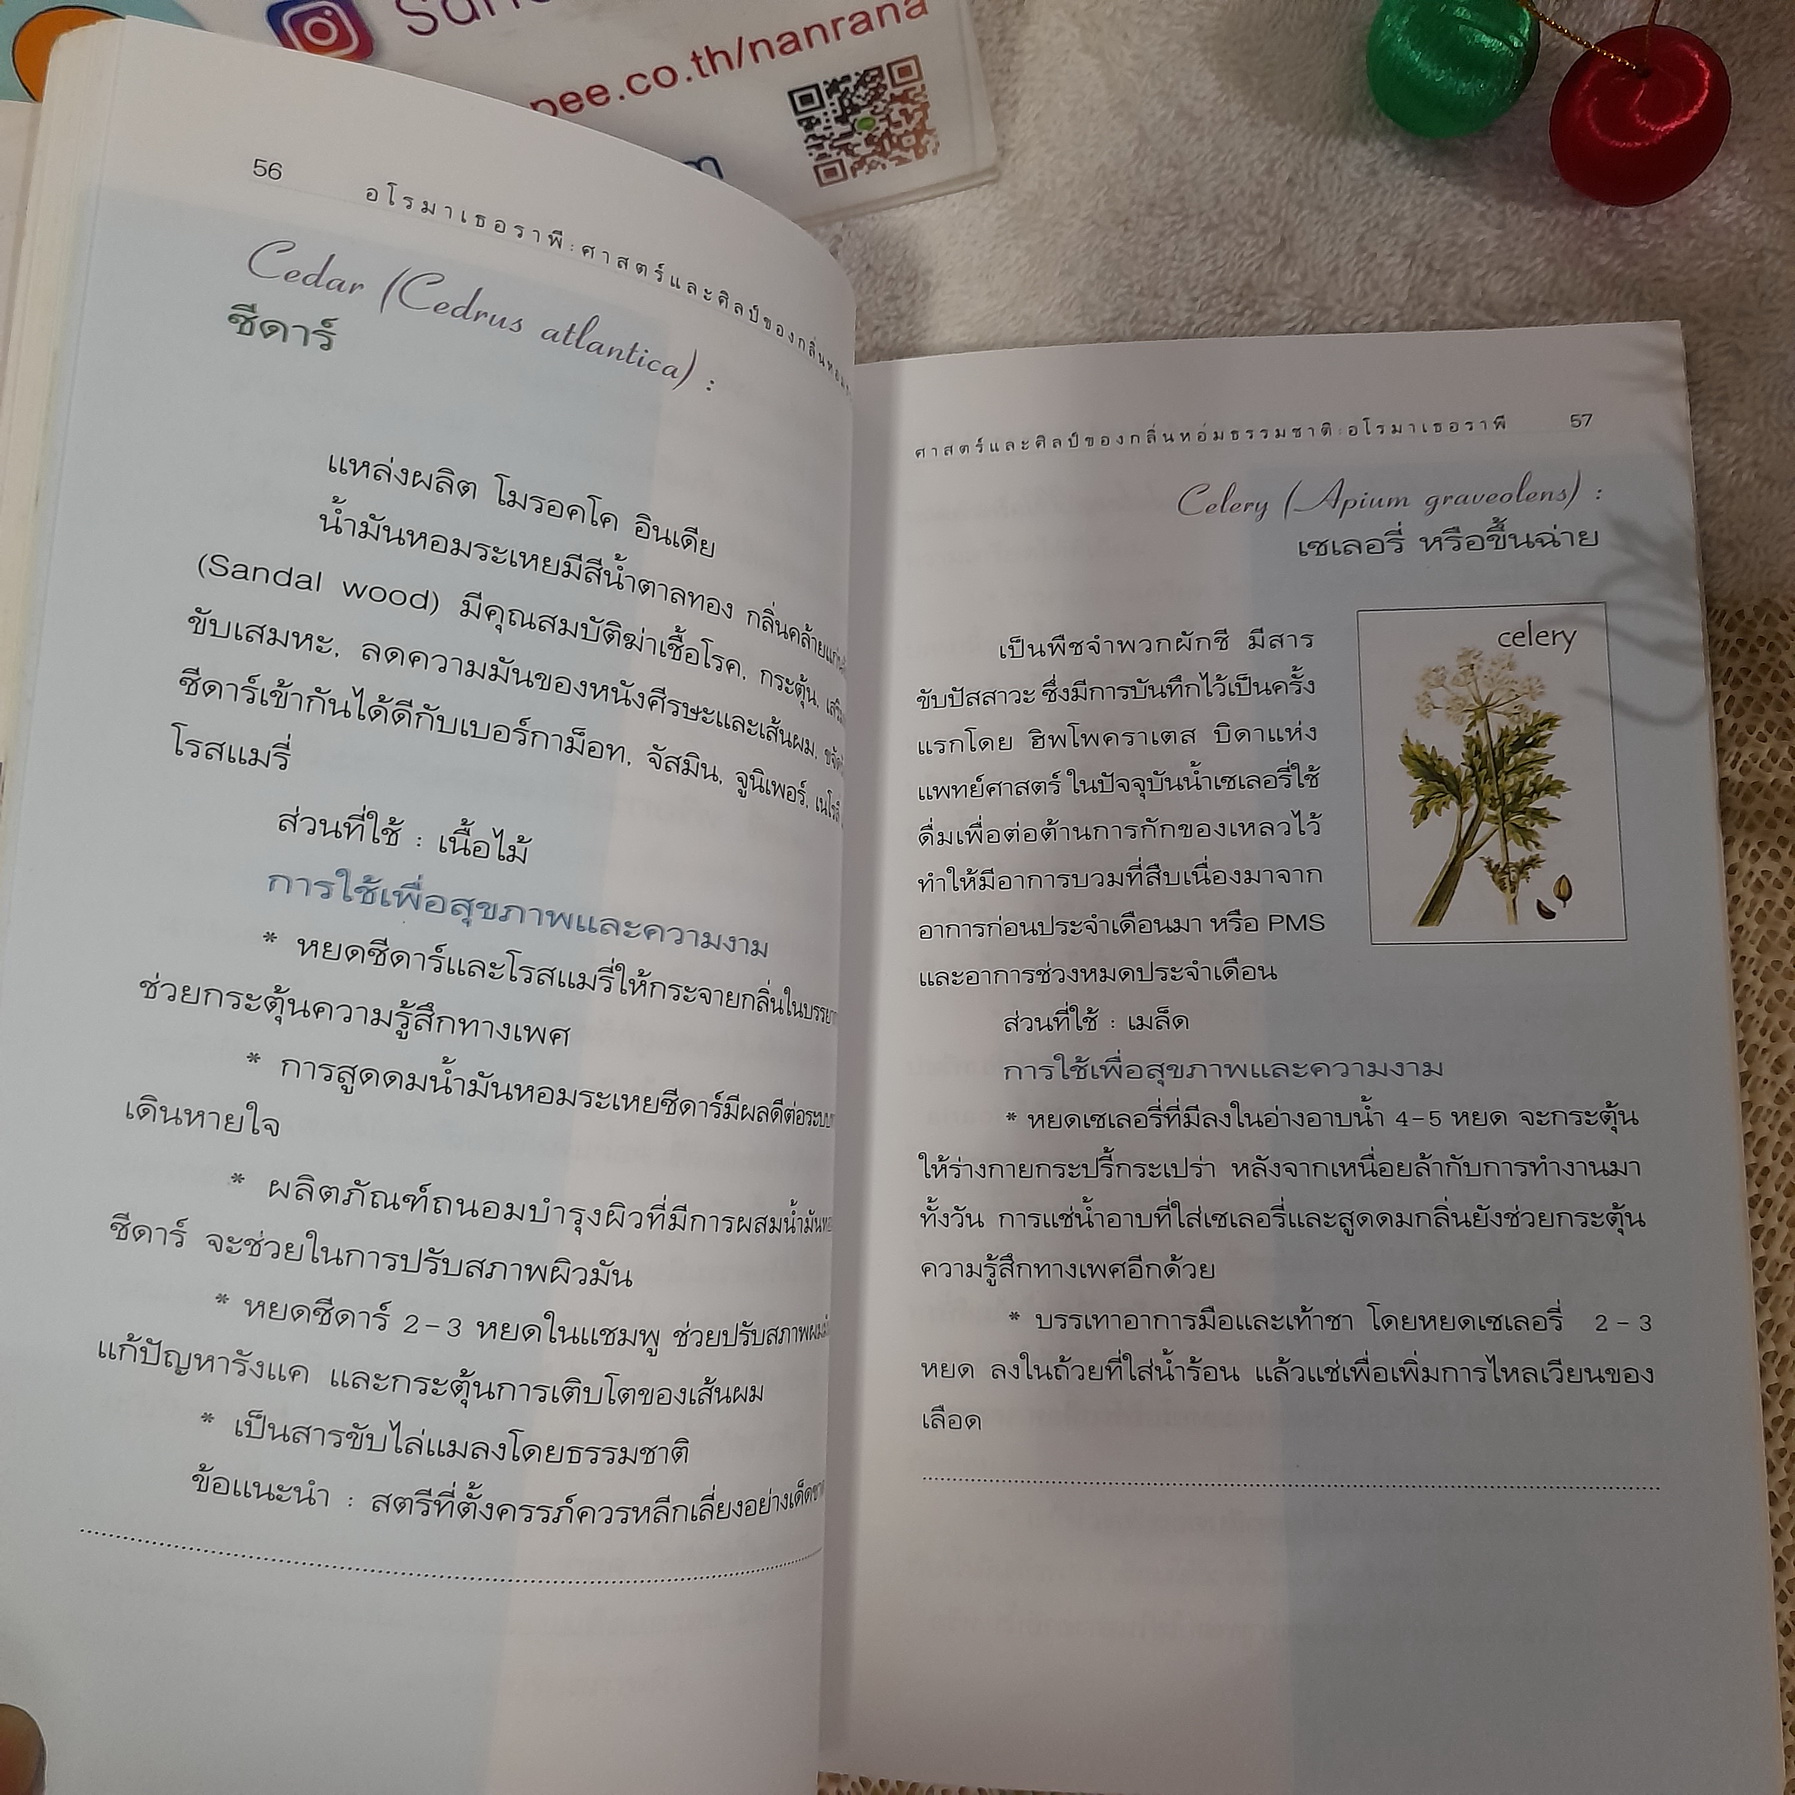 pee.co.th/nanrana
56
อโรมาเธอราพี:ศาสตร์และศิลป์ของกลิ่นหอม
Cedar (Cedrus atlantica) :
ซีดาร์
แหล่งผลิต โมรอคโค อินเดีย
น้ำมันหอมระเหยมีสีน้ำตาลทอง กลิ่นคล้าย
(Sandal wood) มีคุณสมบัติฆ่าเชื้อโรค, กระตุ้น,
ขับเสมหะ, ลดความมันของหนังศีรษะและเส้นผม,
ซีดาร์เข้ากันได้ดีกับเบอร์กาม็อท, จัสมิน, จูนิเพอร์, เนโรลี
โรสแมรี่
ส่วนที่ใช้ : เนื้อไม้
การใช้เพื่อสุขภาพและความงาม
* หยดซีดาร์และโรสแมรี่ให้กระจายกลิ่นใน
ช่วยกระตุ้นความรู้สึกทางเพศ
* การสูดดมน้ำมันหอมระเหยซีดาร์มีผลดีต่อ
เดินหายใจ
* ผลิตภัณฑ์ถนอมบำรุงผิวที่มีการผสมน้ำมัน
ซีดาร์ จะช่วยในการปรับสภาพผิวมัน
* หยดซีดาร์ 2-3 หยดในแชมพู ช่วยปรับสภาพ
แก้ปัญหารังแค และกระตุ้นการเติบโตของเส้นผม
* เป็นสารขับไล่แมลงโดยธรรมชาติ
ข้อแนะนำ : สตรีที่ตั้งครรภ์ควรหลีกเลี่ยงอย่าง
ศาสตร์และศิลป์ของกลิ่นหอมธรรมชาติ:อโรมาเธอราพี 57
Celery (Apium graveolens) :
เซเลอรี่ หรือขึ้นฉ่าย
celery
เป็นพืชจำพวกผักชี มีสาร
ขับปัสสาวะ ซึ่งมีการบันทึกไว้เป็นครั้ง
แรกโดย ฮิพโพคราเตส บิดาแห่ง
แพทย์ศาสตร์ ในปัจจุบันน้ำเซเลอรี่ใช้
ดื่มเพื่อต่อต้านการกักของเหลวไว้
ทำให้มีอาการบวมที่สืบเนื่องมาจาก
อาการก่อนประจำเดือนมา หรือ PMS
และอาการช่วงหมดประจำเดือน
ส่วนที่ใช้ : เมล็ด
การใช้เพื่อสุขภาพและความงาม
* หยดเซเลอรี่ที่มีลงในอ่างอาบน้ำ 4-5 หยด จะกระตุ้น
ให้ร่างกายกระปรี้กระเปร่า หลังจากเหนื่อยล้ากับการทำงานมา
ทั้งวัน การแช่น้ำอาบที่ใส่เซเลอรี่และสูดดมกลิ่นยังช่วยกระตุ้น
ความรู้สึกทางเพศอีกด้วย
* บรรเทาอาการมือและเท้าชา โดยหยดเซเลอรี่ 2-3
หยด ลงในถ้วยที่ใส่น้ำร้อน แล้วแช่เพื่อเพิ่มการไหลเวียนของ
เลือด